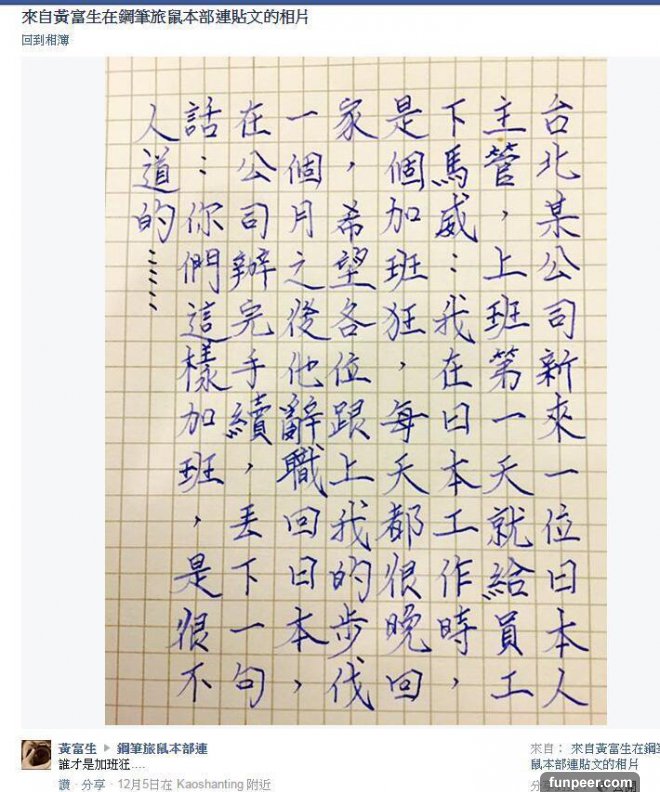 來自黃富生在鋼筆旅鼠本部連貼文的相片
回到相簿
台北某公司新來一位日本人
主管，上班第一天就給員工
下馬威：我在日本工作時，
是個加班狂，每天都很晚回
家，希望各位跟上我的步伐
一個月之後他辭職回日本，
在公司辦完手續，丟下一句
話：你們這樣加班，是很不
人道的……
黃富生 ▶ 鋼筆旅鼠本部連
誰才是加班狂....
讚 · 分享 · 12月5日在 Kaoshanting 附近
來自： 來自黃富生在鋼
鼠本部連貼文的相片
funpeer.com